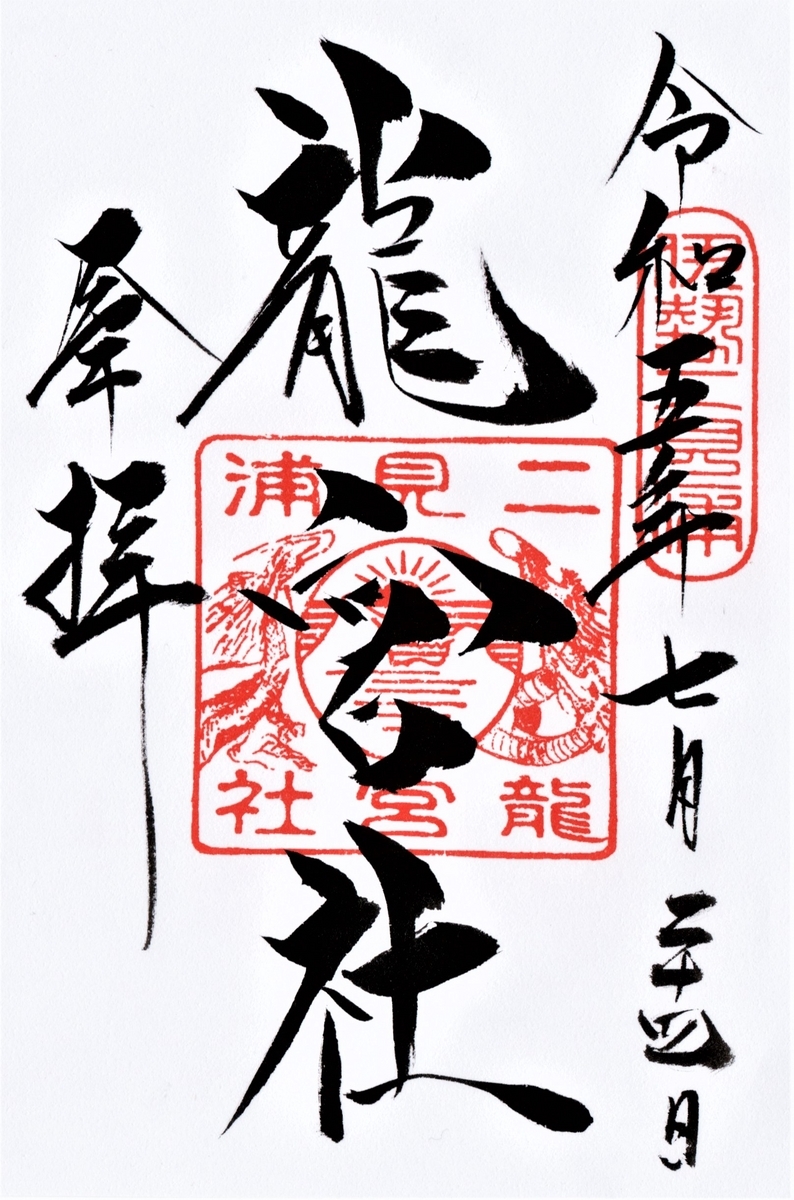 令和五年七月二十四日
伊勢二見浦
龍宮社
二見浦
龍宮社
奉拝